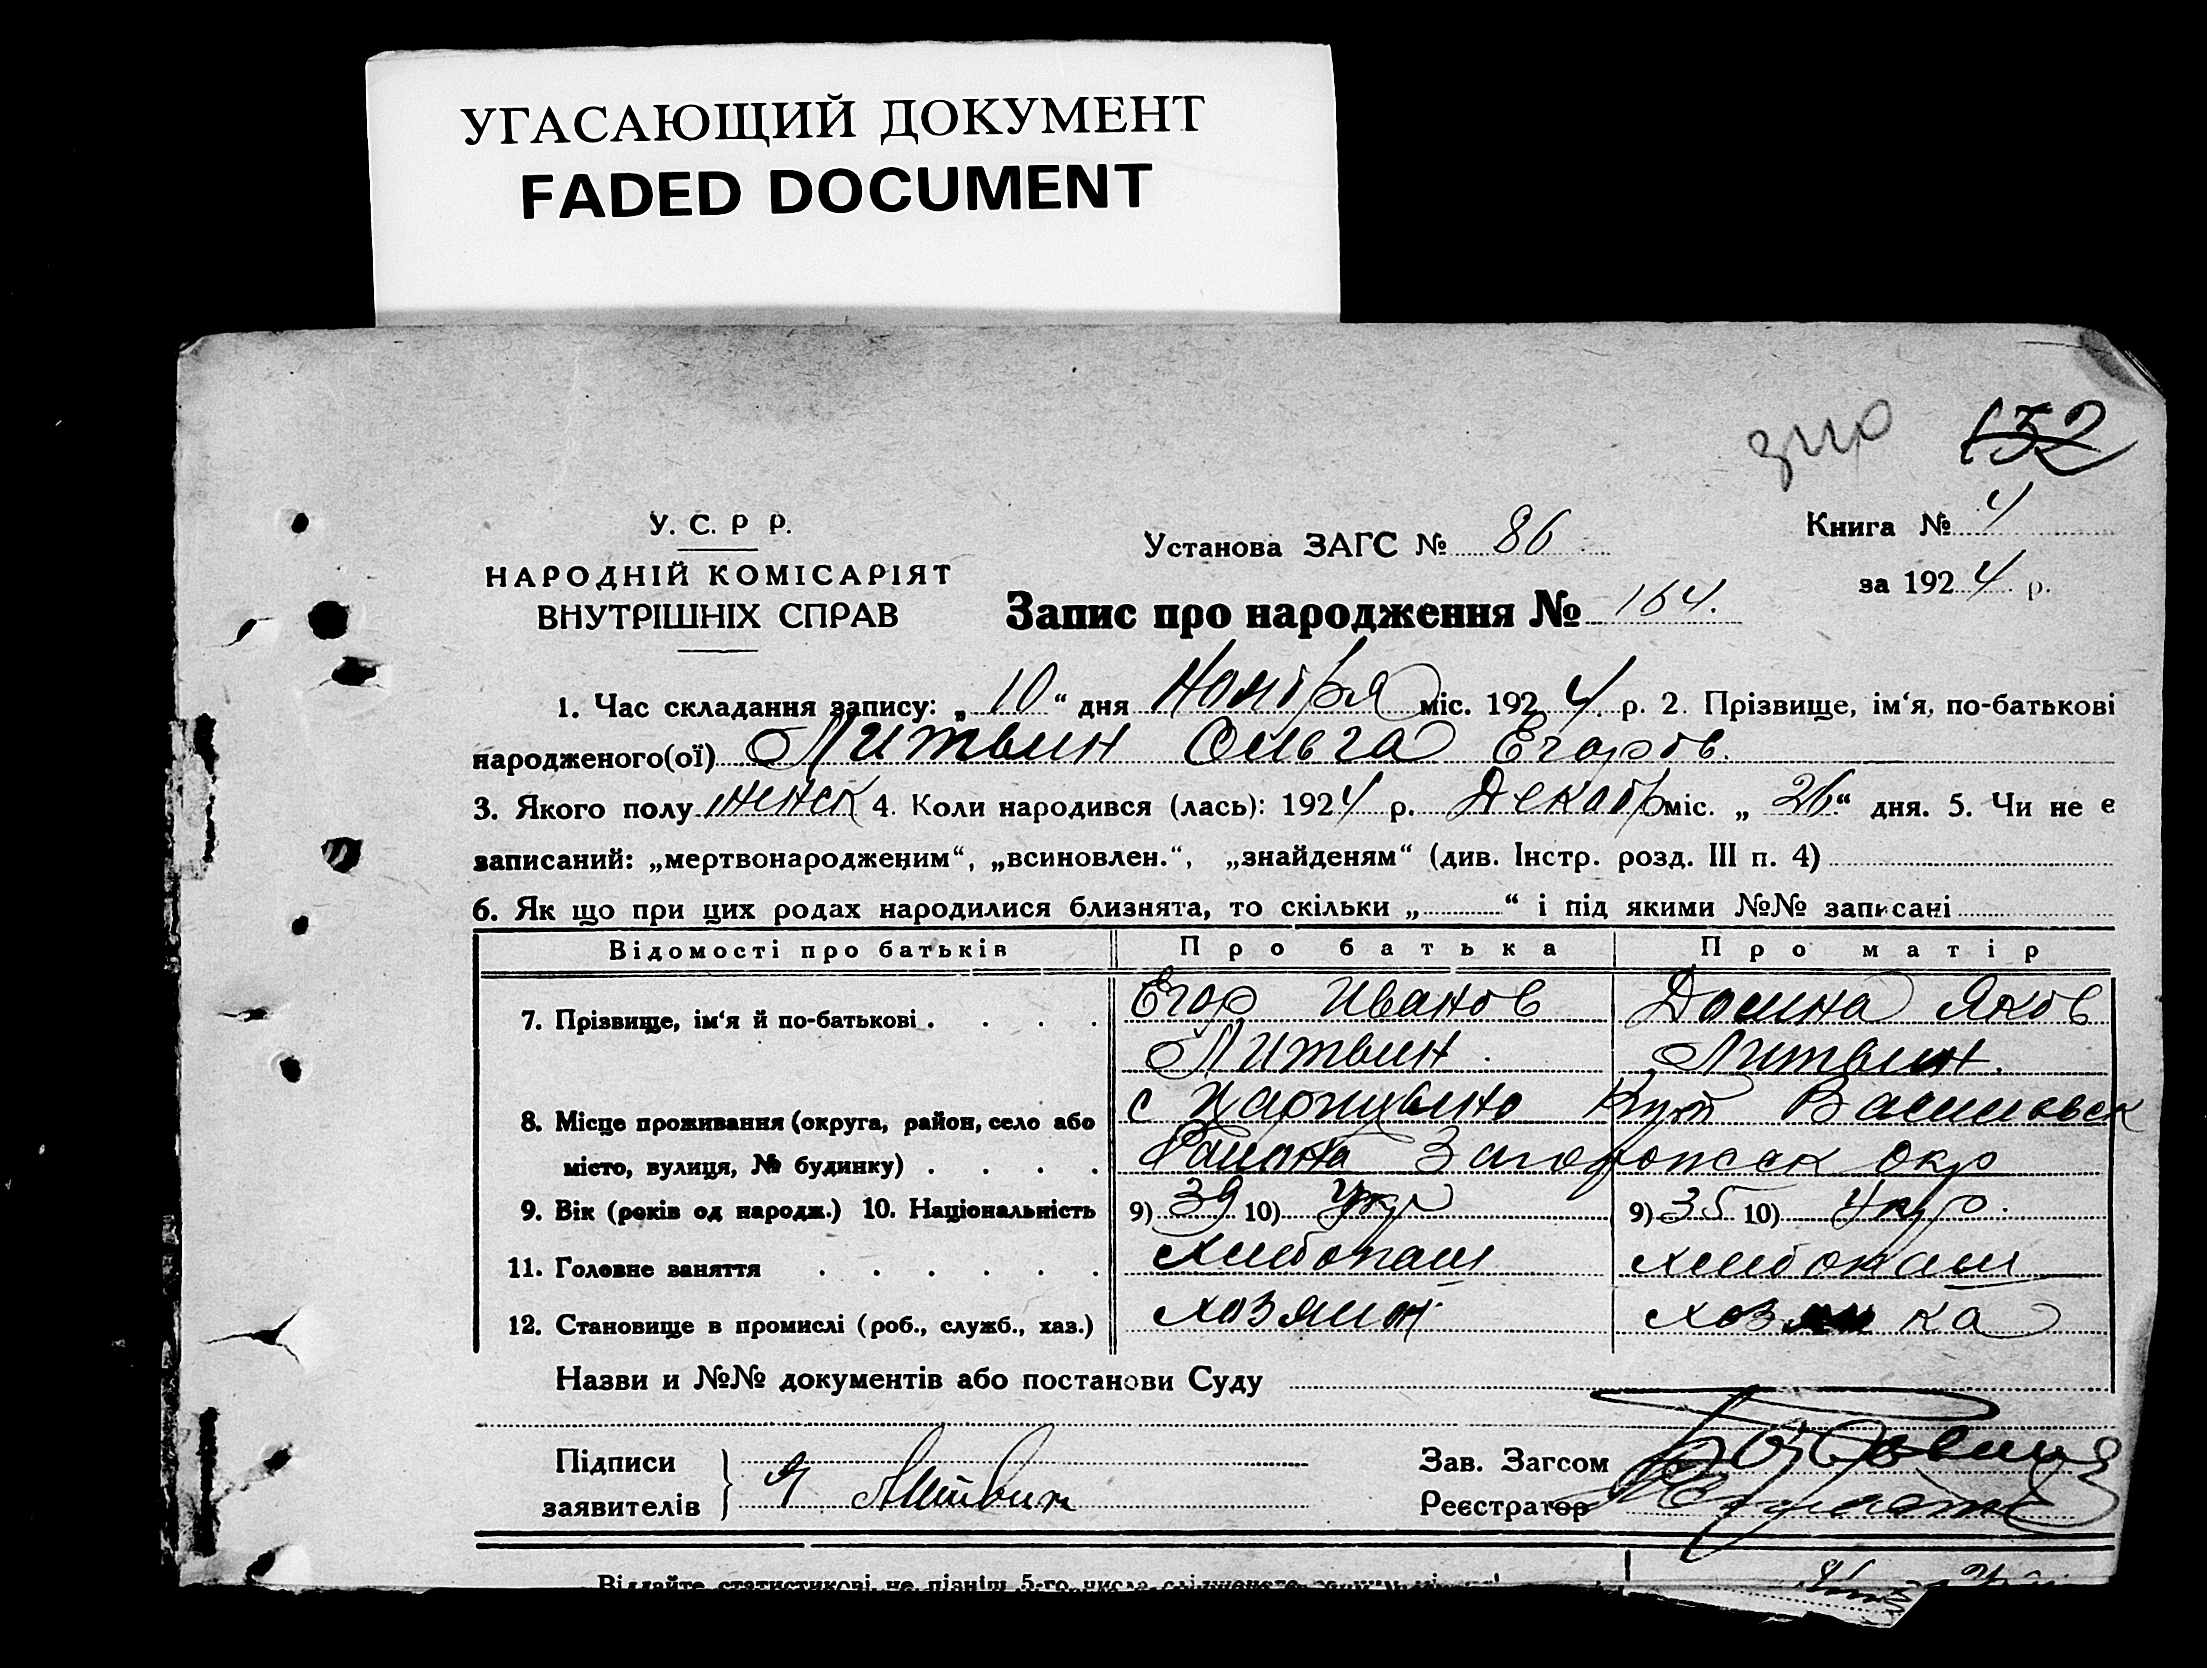 УГАСАЮЩИЙ ДОКУМЕНТ
FADED DOCUMENT
132
У. С. Р Р.
НАРОДНІЙ КОМІСАРІЯТ
ВНУТРІШНІХ СПРАВ
Установа ЗАГС № 86
Книга № 4
за 1924 р.
Запис про народження № 164.
1. Час складання запису: „10“ дня Ноября міс. 1924 р. 2. Прізвище, ім‘я, по-батькові
народженого(ої) Литвин Ольга Егоров.
3. Якого полу женск 4. Коли народився (лась): 1924 р. Декабр міс. „26“ дня. 5. Чи не є
записаний: „мертвонародженим“, „всиновлен.“, „знайденям“ (див. Інстр. розд. III п. 4)
6. Як що при цих родах народилися близнята, то скільки „ “ і під якими №№ записані
Відомості про батьків Про батька Про матір
7. Прізвище, ім‘я й по-батькові Егор Иванов Домна Яков
Литвин. Литвин.
8. Місце проживання (округа, район, село або с Царицыно Кут Васильевск
місто, вулиця, № будинку) Района Запорожск окр
9. Вік (років од народж.) 10. Національність 9) 39 10) Укр 9) 35 10) Укр.
11. Головне заняття хлебопаш хлебопаш
12. Становище в промислі (роб., служб., хаз.) хозяин хозяйка
Назви и №№ документів або постанови Суду
Підписи
заявителів Литвин
Зав. Загсом
Реєстратор
Віддайте статистикові не пізніш 5-го числа